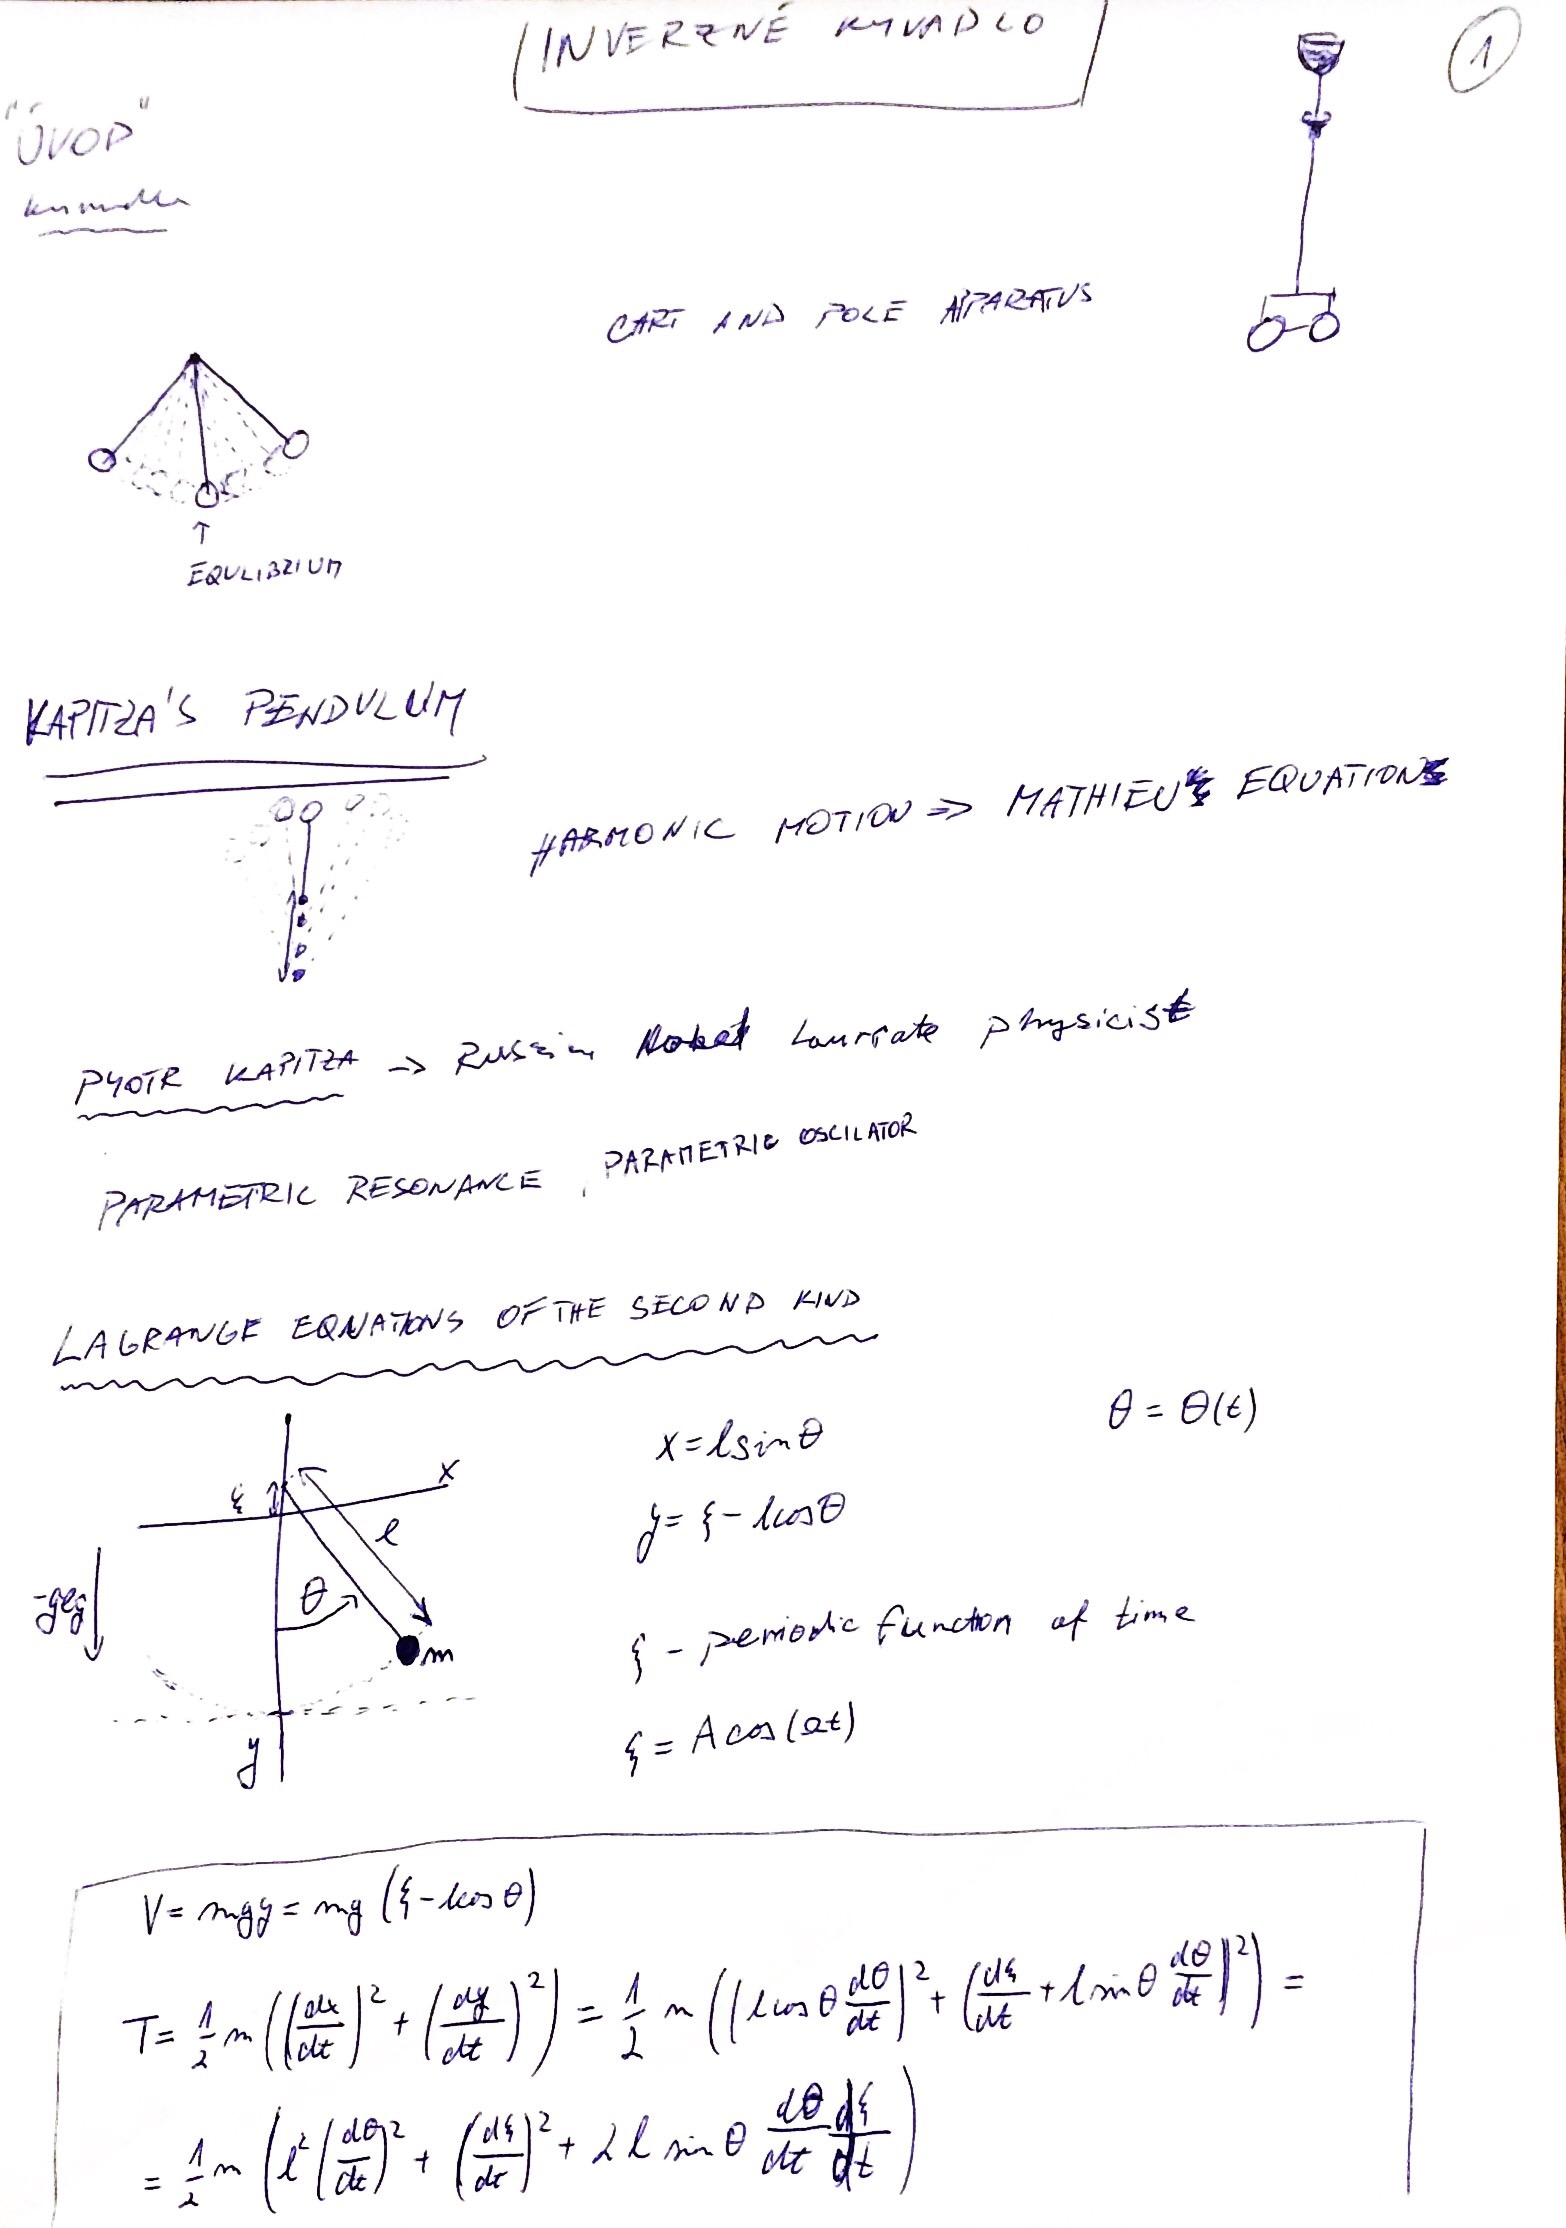 INVERZNÉ KYVADLO
1
"ÚVOD"
CART AND POLE APPARATUS
↑
EQULIBRIUM
KAPITZA'S PENDULUM
HARMONIC MOTION => MATHIEU EQUATION
PYOTR KAPITZA -> Russian Nobel Laureate physicist
PARAMETRIC RESONANCE, PARAMETRIC OSCILATOR
LAGRANGE EQUATIONS OF THE SECOND KIND
x = l sin θ
θ = θ(t)
y = ξ - l cos θ
ξ
x
l
θ
-g e_y
m
y
ξ - periodic function of time
ξ = A cos(Ωt)
V = mgy = mg (ξ - l cos θ)
T = 1/2 m ((dx/dt)² + (dy/dt)²) = 1/2 m ((l cos θ dθ/dt)² + (dξ/dt + l sin θ dθ/dt)²) =
= 1/2 m (l² (dθ/dt)² + (dξ/dt)² + 2 l sin θ dθ/dt dξ/dt)